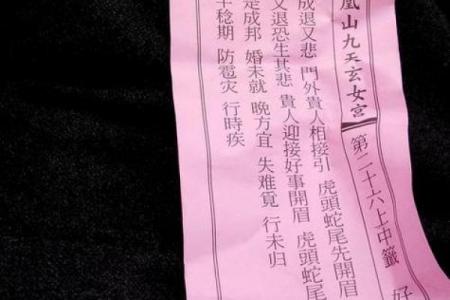 凰山九天玄女宮 第二十六上中籤 好
成退又悲 門外貴人相接引 虎頭蛇尾先開眉
又退恐生其悲 貴人迎接好事開眉 虎頭蛇尾
是成邦 婚未就 晚方宜 失难覓 行未归
稔期 防雹灾 行時疾